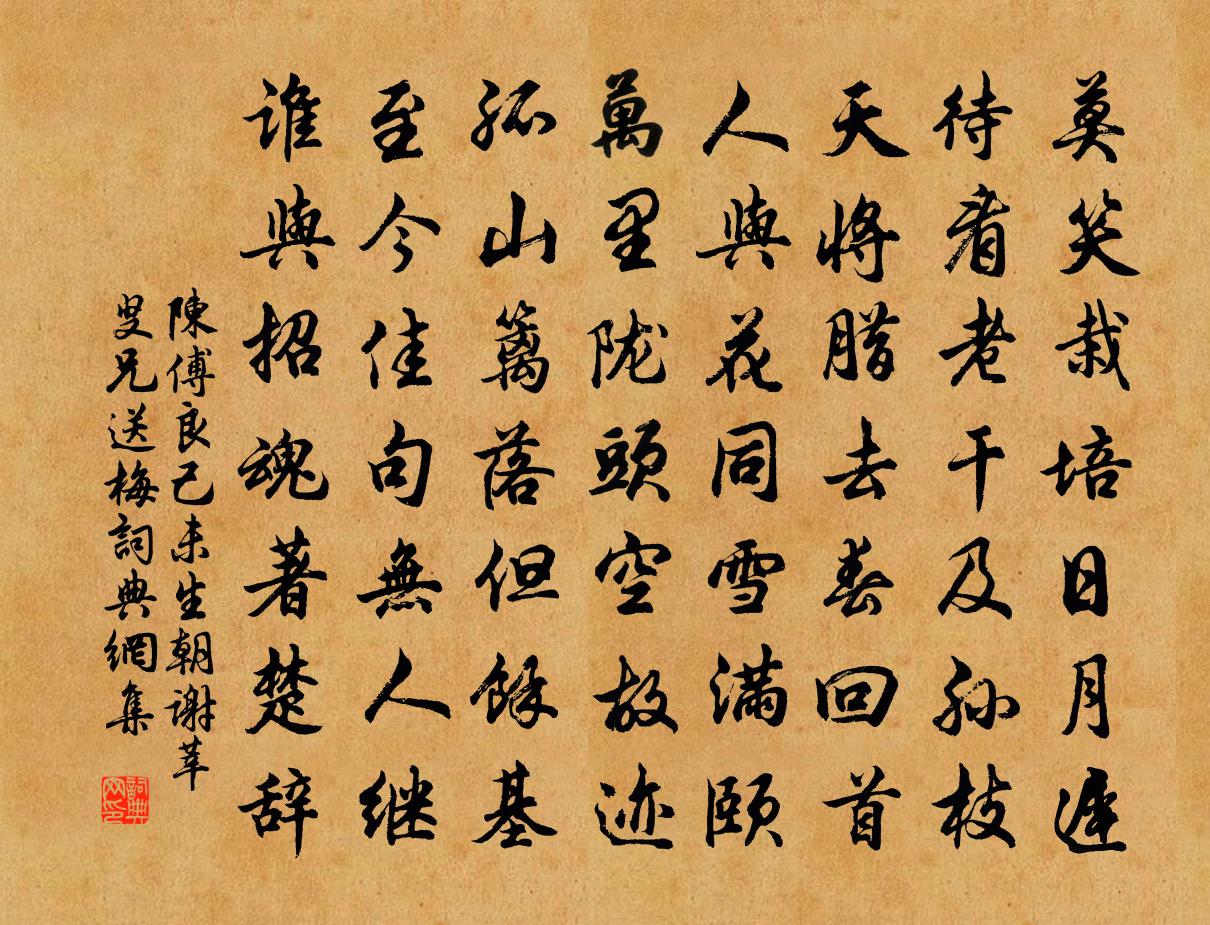 莫笑栽培日月遲
待看老干及孫枝
天將腊去春回首
人與花同雪滿頤
萬里陇頭空故迹
孤山篱落但餘基
至今佳句無人继
谁與招魂著楚辞
陳傅良己未生朝谢莘
叟兄送梅詞典網集
詞典网印